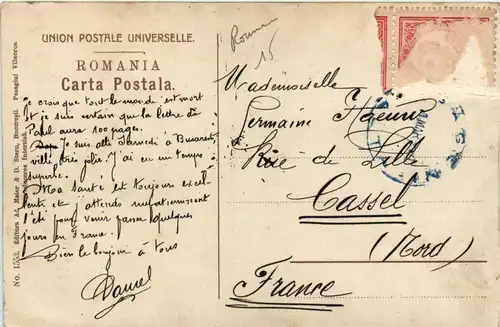 UNION POSTALE UNIVERSELLE.
ROMANIA
Carta Postala.
Roumanie
15
Je crois que tout le monde est mort
et je suis certain que la lettre de
Paul aura 100 pages.
Je suis allé Samedi à Bucarest,
ville très jolie. J'ai eu un temps
superbe.
Ma santé est toujours excel
lente et j'attends impatiemment
l'été pour venir passer quelques
jours en France.
Bien le bonjour à tous
Daniel
Mademoiselle
Germaine
Rue de Lille
Cassel
(Nord)
France
No. 1553. Editura Ad. Maier & D. Stern, Bucureşti. Pasagiul Villacros